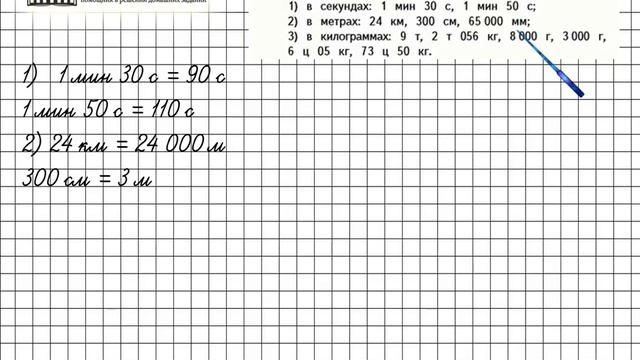 помощник в решении домашних заданий
1) в секундах: 1 мин 30 с, 1 мин 50 с;
2) в метрах: 24 км, 300 см, 65 000 мм;
3) в килограммах: 9 т, 2 т 056 кг, 8 000 г, 3 000 г,
6 ц 05 кг, 73 ц 50 кг.
1) 1 мин 30 с = 90 с
1 мин 50 с = 110 с
2) 24 км = 24 000 м
300 см = 3 м